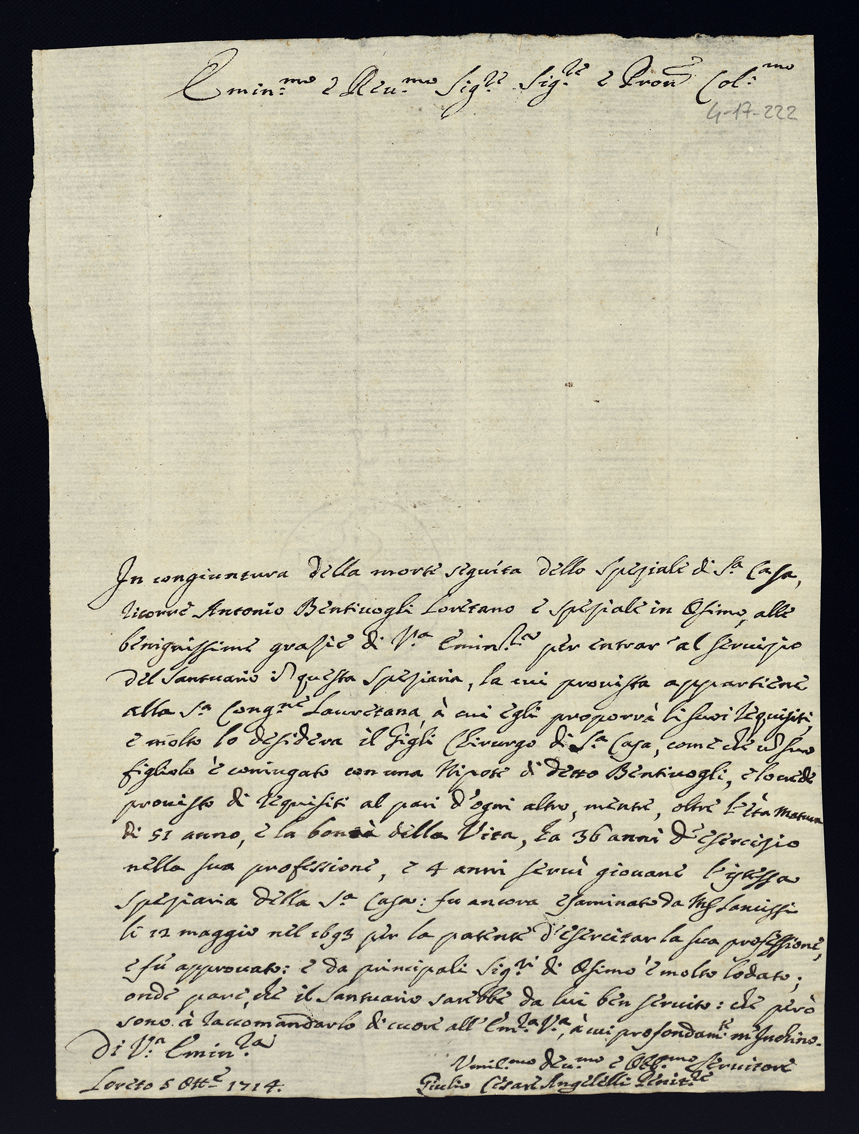 Emin.mo e Reu.mo Sig.re Sig.re e Pron Col.mo
4-17-222
In congiuntura della morte seguita dello Speziale di S.a Casa,
ricorre Antonio Bentiuogli Loretano e speziale in Osimo, alle
benignissime grazie di V.a Emin.za per entrar al seruizio
del Santuario in questa Speziaria, la cui prouista appartiene
alla S.a Cong.ne Lauretana, à cui egli proporrà li suoi requisiti,
e molto lo desidera il Gigli Chirurgo di S.a Casa, come che un suo
figliolo è coniugato con una Nipote di detto Bentiuogli, e lo crede
prouisto di requisiti al pari d'ogni altro, mentre, oltre l'età matura
di 51 anno, e la bontà della Vita, ha 36 anni d'esercizio
nella sua professione, e 4 anni seruì giouane l'istessa
Speziaria della S.a Casa: fu ancora esaminato da Lancissi
li 12 maggio nel 1693 per la patente d'esercitar la sua professione,
e fù approuato: e da principali Sig.ri di Osimo è molto lodato;
onde pare, che il Santuario sarebbe da lui ben seruito: che però
sono à raccomandarlo di cuore all'Em.za V.a, à cui profondam.te m'Inchino.
Di V.a Emin.za
Vmil.mo deu.mo e Obb.mo seruitore
Loreto 5 Ott.e 1714.
Giulio Cesare Angelelli Penit.re